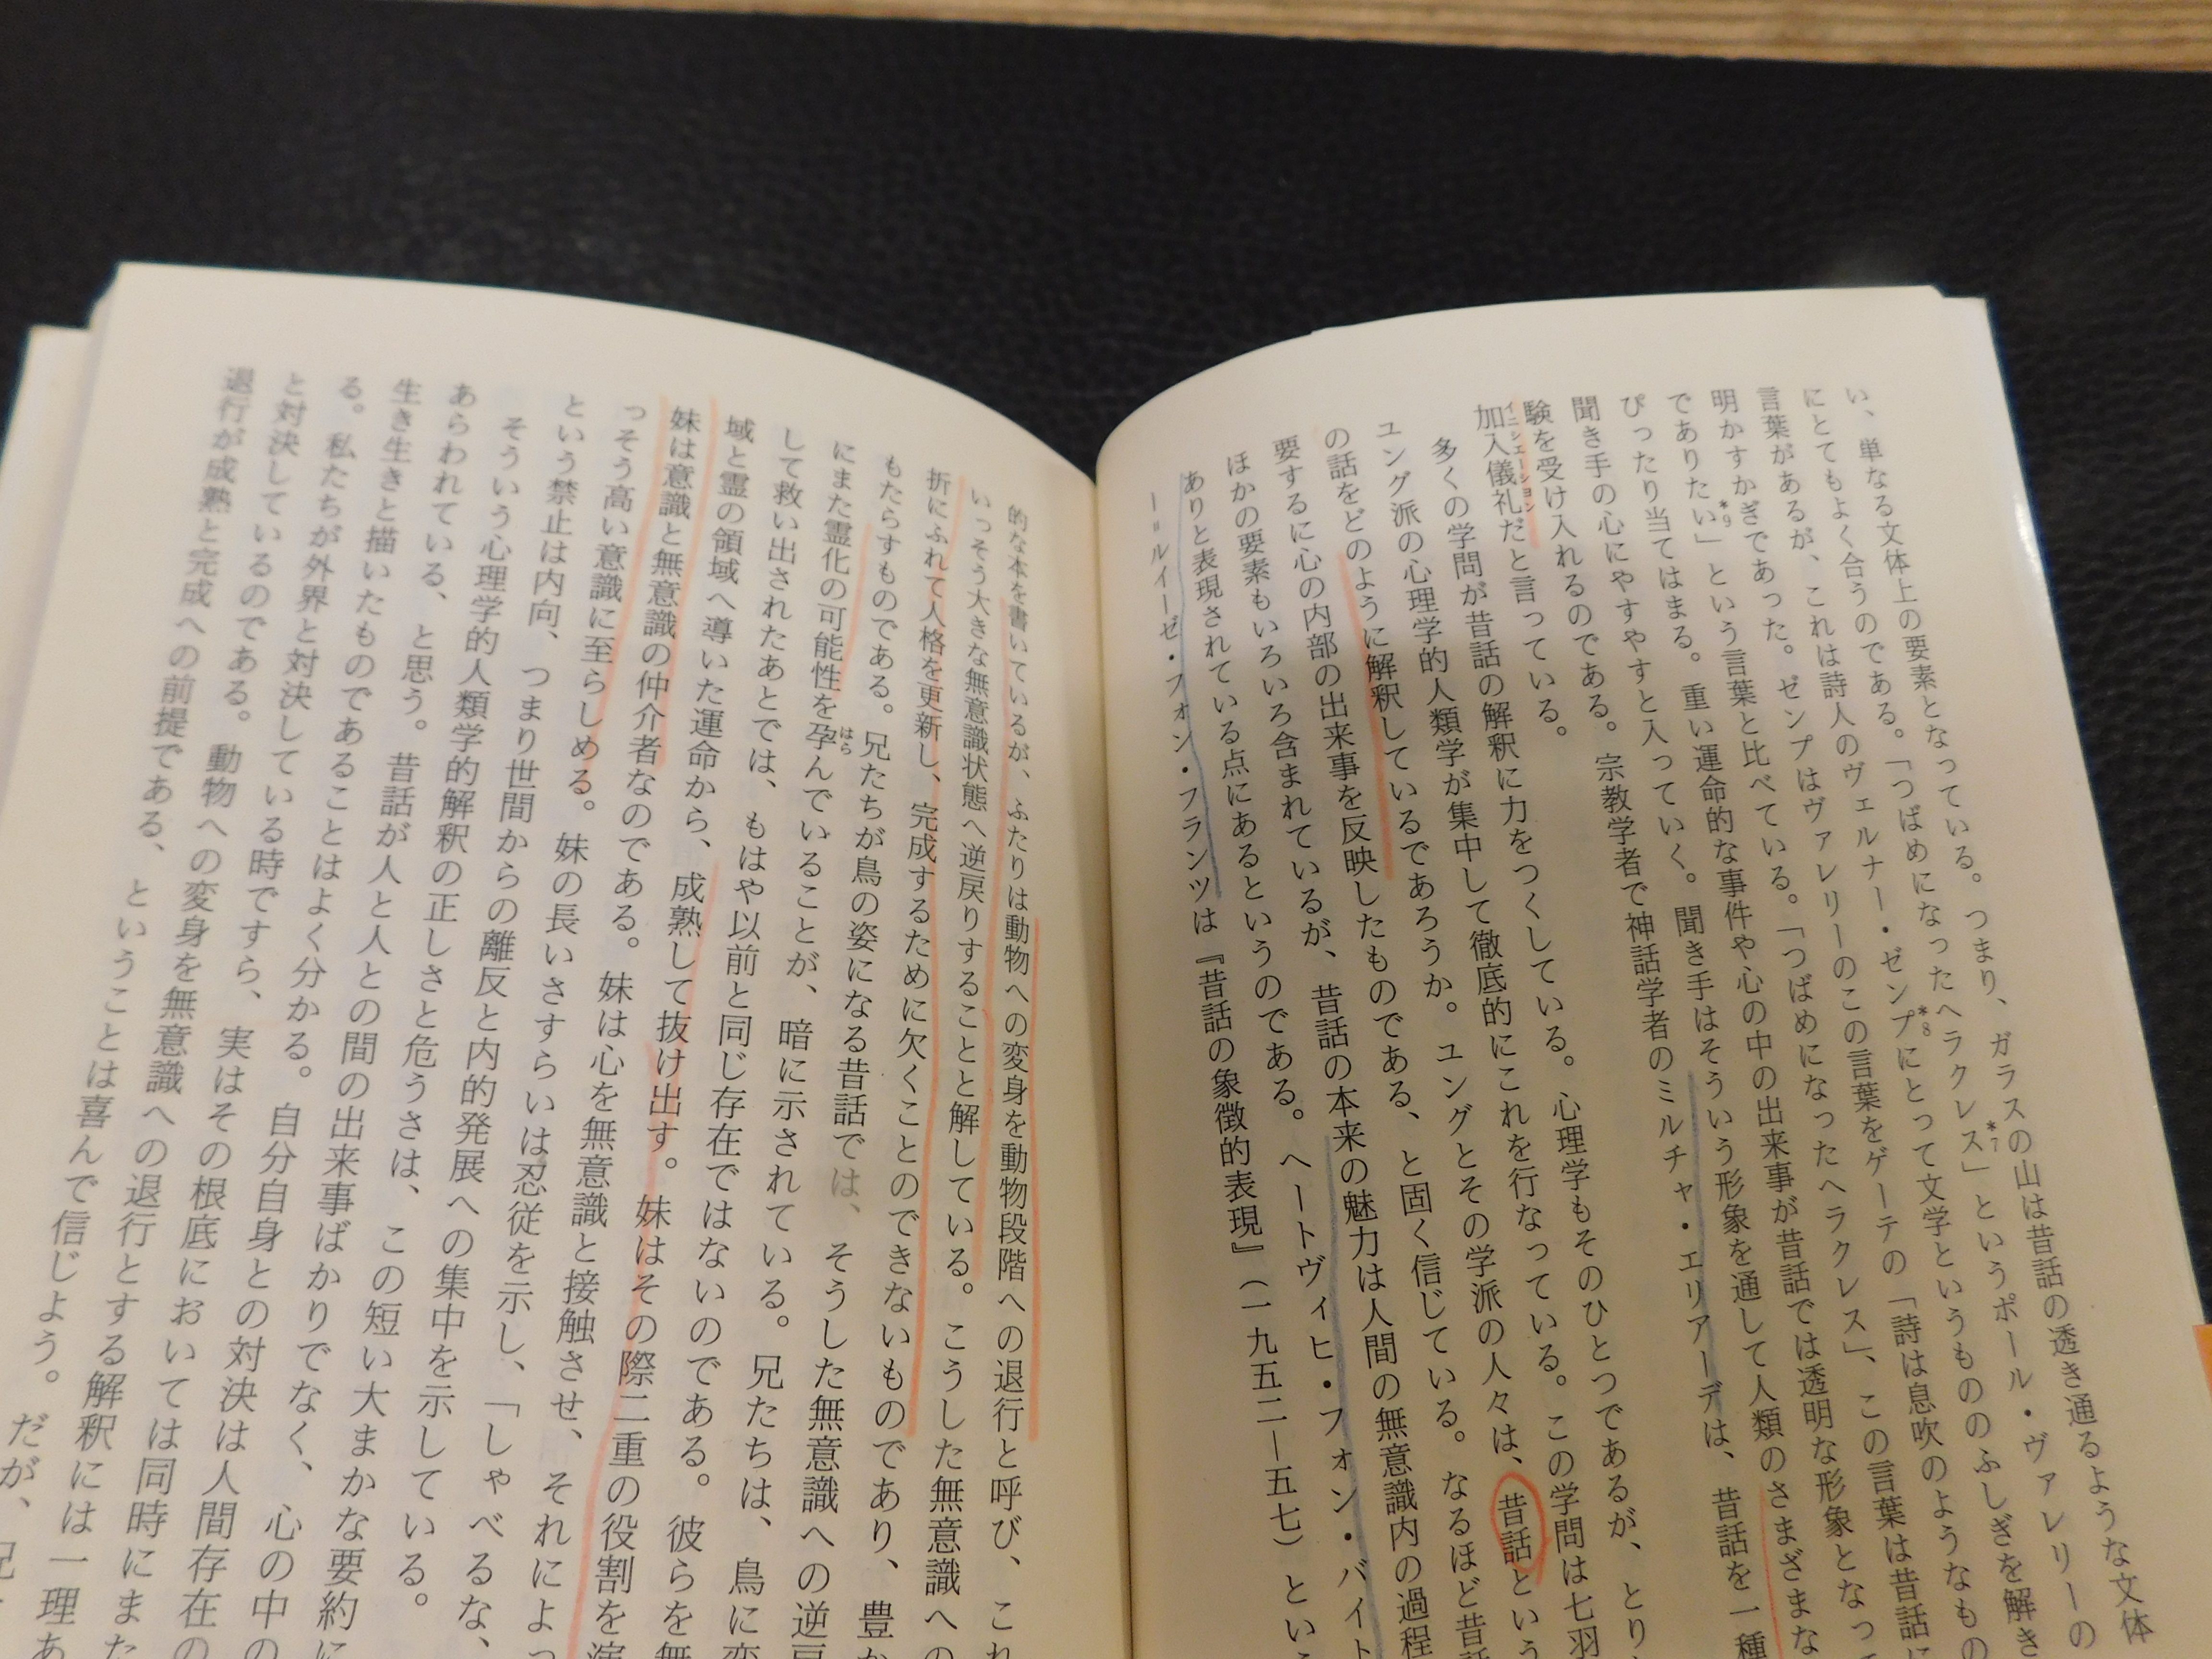 い、単なる文体上の要素となっている。つまり、ガラスの山は昔話の透き通るような文体
にとてもよく合うのである。「つばめになったヘラクレス」*7というポール・ヴァレリーの
言葉があるが、これは詩人のヴェルナー・ゼンプ*8にとって文学というもののふしぎを解き
明かすかぎであった。ゼンプはヴァレリーのこの言葉をゲーテの「詩は息吹のようなもの
でありたい*9」という言葉と比べている。「つばめになったヘラクレス」、この言葉は昔話に
ぴったり当てはまる。重い運命的な事件や心の中の出来事が昔話では透明な形象となって
聞き手の心にやすやすと入っていく。聞き手はそういう形象を通して人類のさまざまな
験を受け入れるのである。宗教学者で神話学者のミルチャ・エリアーデは、昔話を一種
加入儀礼イニシェーションだと言っている。
多くの学問が昔話の解釈に力をつくしている。心理学もそのひとつであるが、とり
ユング派の心理学的人類学が集中して徹底的にこれを行なっている。この学問は七羽
の話をどのように解釈しているであろうか。ユングとその学派の人々は、昔話という
要するに心の内部の出来事を反映したものである、と固く信じている。なるほど昔話
ほかの要素もいろいろ含まれているが、昔話の本来の魅力は人間の無意識内の過程
ありと表現されている点にあるというのである。ヘートヴィヒ・フォン・バイト
ー=ルイーゼ・フォン・フランツは『昔話の象徴的表現』(一九五二―五七)とい
的な本を書いているが、ふたりは動物への変身を動物段階への退行と呼び、これ
いっそう大きな無意識状態へ逆戻りすることと解している。こうした無意識への
折にふれて人格を更新し、完成するために欠くことのできないものであり、豊か
もたらすものである。兄たちが鳥の姿になる昔話では、そうした無意識への逆戻
にまた霊化の可能性を孕はらんでいることが、暗に示されている。兄たちは、鳥に変
して救い出されたあとでは、もはや以前と同じ存在ではないのである。彼らを無
域と霊の領域へ導いた運命から、成熟して抜け出す。妹はその際二重の役割を演
妹は意識と無意識の仲介者なのである。妹は心を無意識と接触させ、それによっ
っそう高い意識に至らしめる。妹の長いさすらいは忍従を示し、「しゃべるな、
という禁止は内向、つまり世間からの離反と内的発展への集中を示している。
そういう心理学的人類学的解釈の正しさと危うさは、この短い大まかな要約に
あらわれている、と思う。昔話が人と人との間の出来事ばかりでなく、心の中の
生き生きと描いたものであることはよく分かる。自分自身との対決は人間存在の
る。私たちが外界と対決している時ですら、実はその根底においては同時にまた
と対決しているのである。動物への変身を無意識への退行とする解釈には一理あ
退行が成熟と完成への前提である、ということは喜んで信じよう。だが、兄